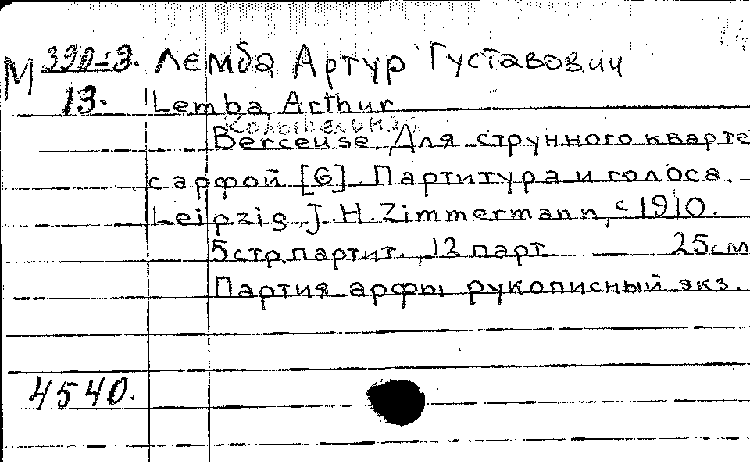 М 390-3. Лемба Артур Густавович
13. Lemba, Arthur
Колыбельная
Berceuse. Для струнного кварте
с арфой [G]. Партитура и голоса.
Leipzig, J. H. Zimmermann, c 1910.
5 стр. партит., 12 парт. 25 см
Партия арфы рукописный экз.
4540.